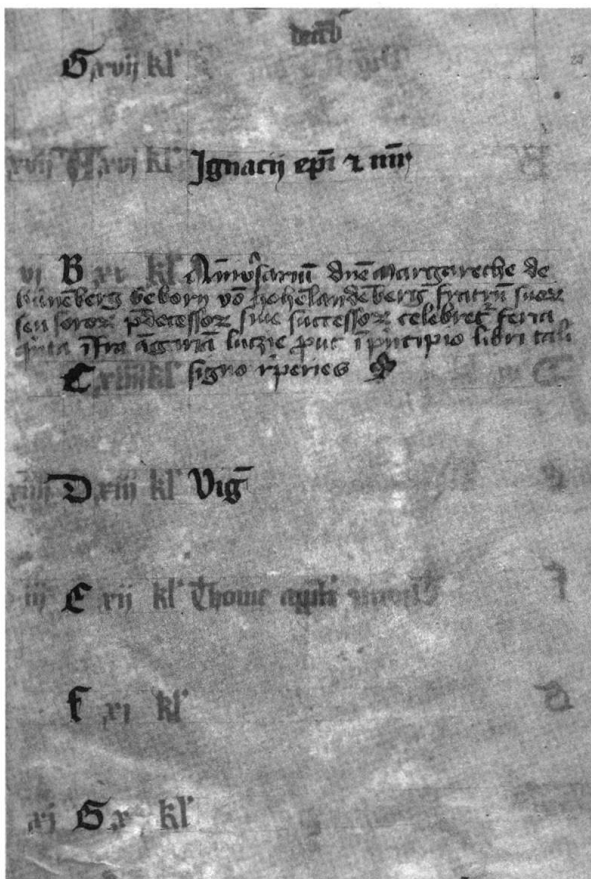 decēb
G xvij kl'
xvij A xvj kl' Ignacij ep̄i ⁊ m̄r
vj B xv kl' Anniv̄sariū dn̄e Margareche de
būnēberg geborn vō hohelandēberg fratrū suoꝝ
seu soroꝝ p̄decessoꝝ siue successoꝝ celebret̄ feria
q̇nta īfra āgariā lucie ꝓut ī pncipio libri tali
C xiiij kl' signo rꝑeries
xiiij D xiij kl' Viḡ
iij E xij kl' Thome apl̄i
F xj kl'
xj G x kl'